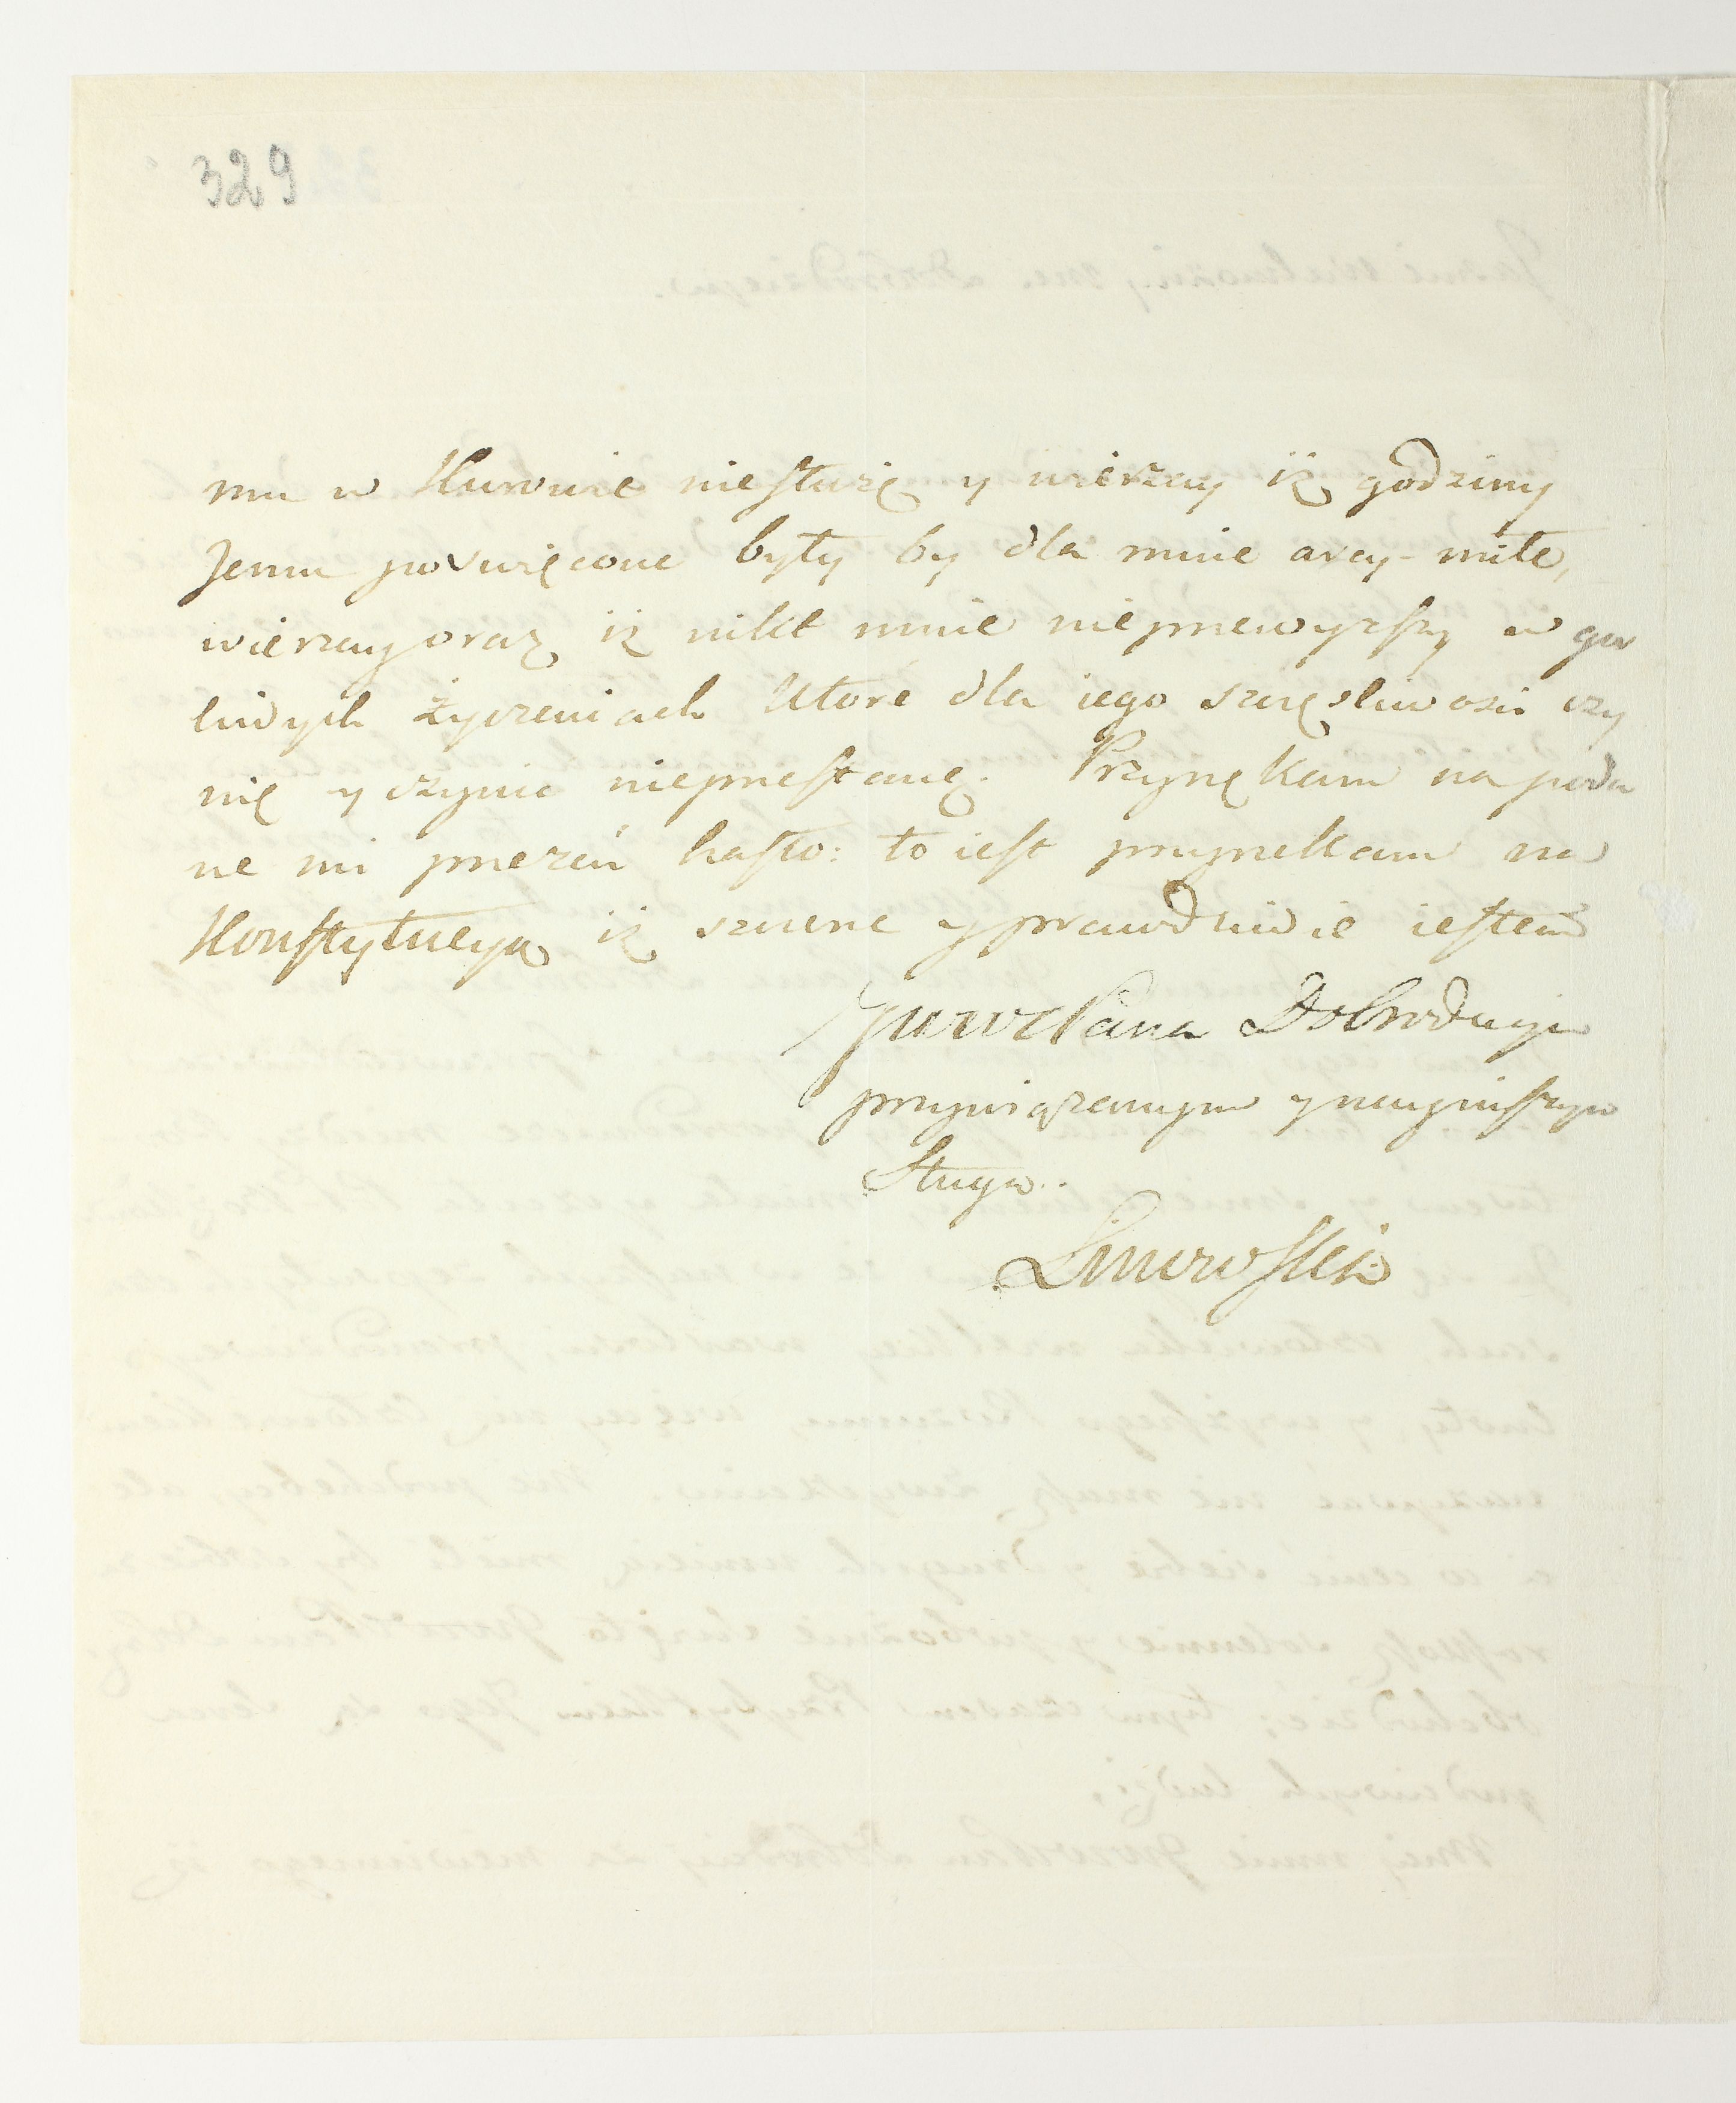 329
mu w Kurowie niesłużę y wierzay iż godziny
Jemu poswięcone były by dla mnie arcy-miłe,
wierzay oraz iż nikt mnie nieprzewyższy w gor
liwych życzeniach które dla iego szczęsliwosci czy
nię y czynic nieprzestanę. Przysiękam na poda
ne mi przezeń hasło: to iest przysiekam na
Konstytucyą iż szczere y prawdziwie iestem
JWWcPana Dobrodzieja
przywiązanym y nayniższym
Sługą.
Linowski